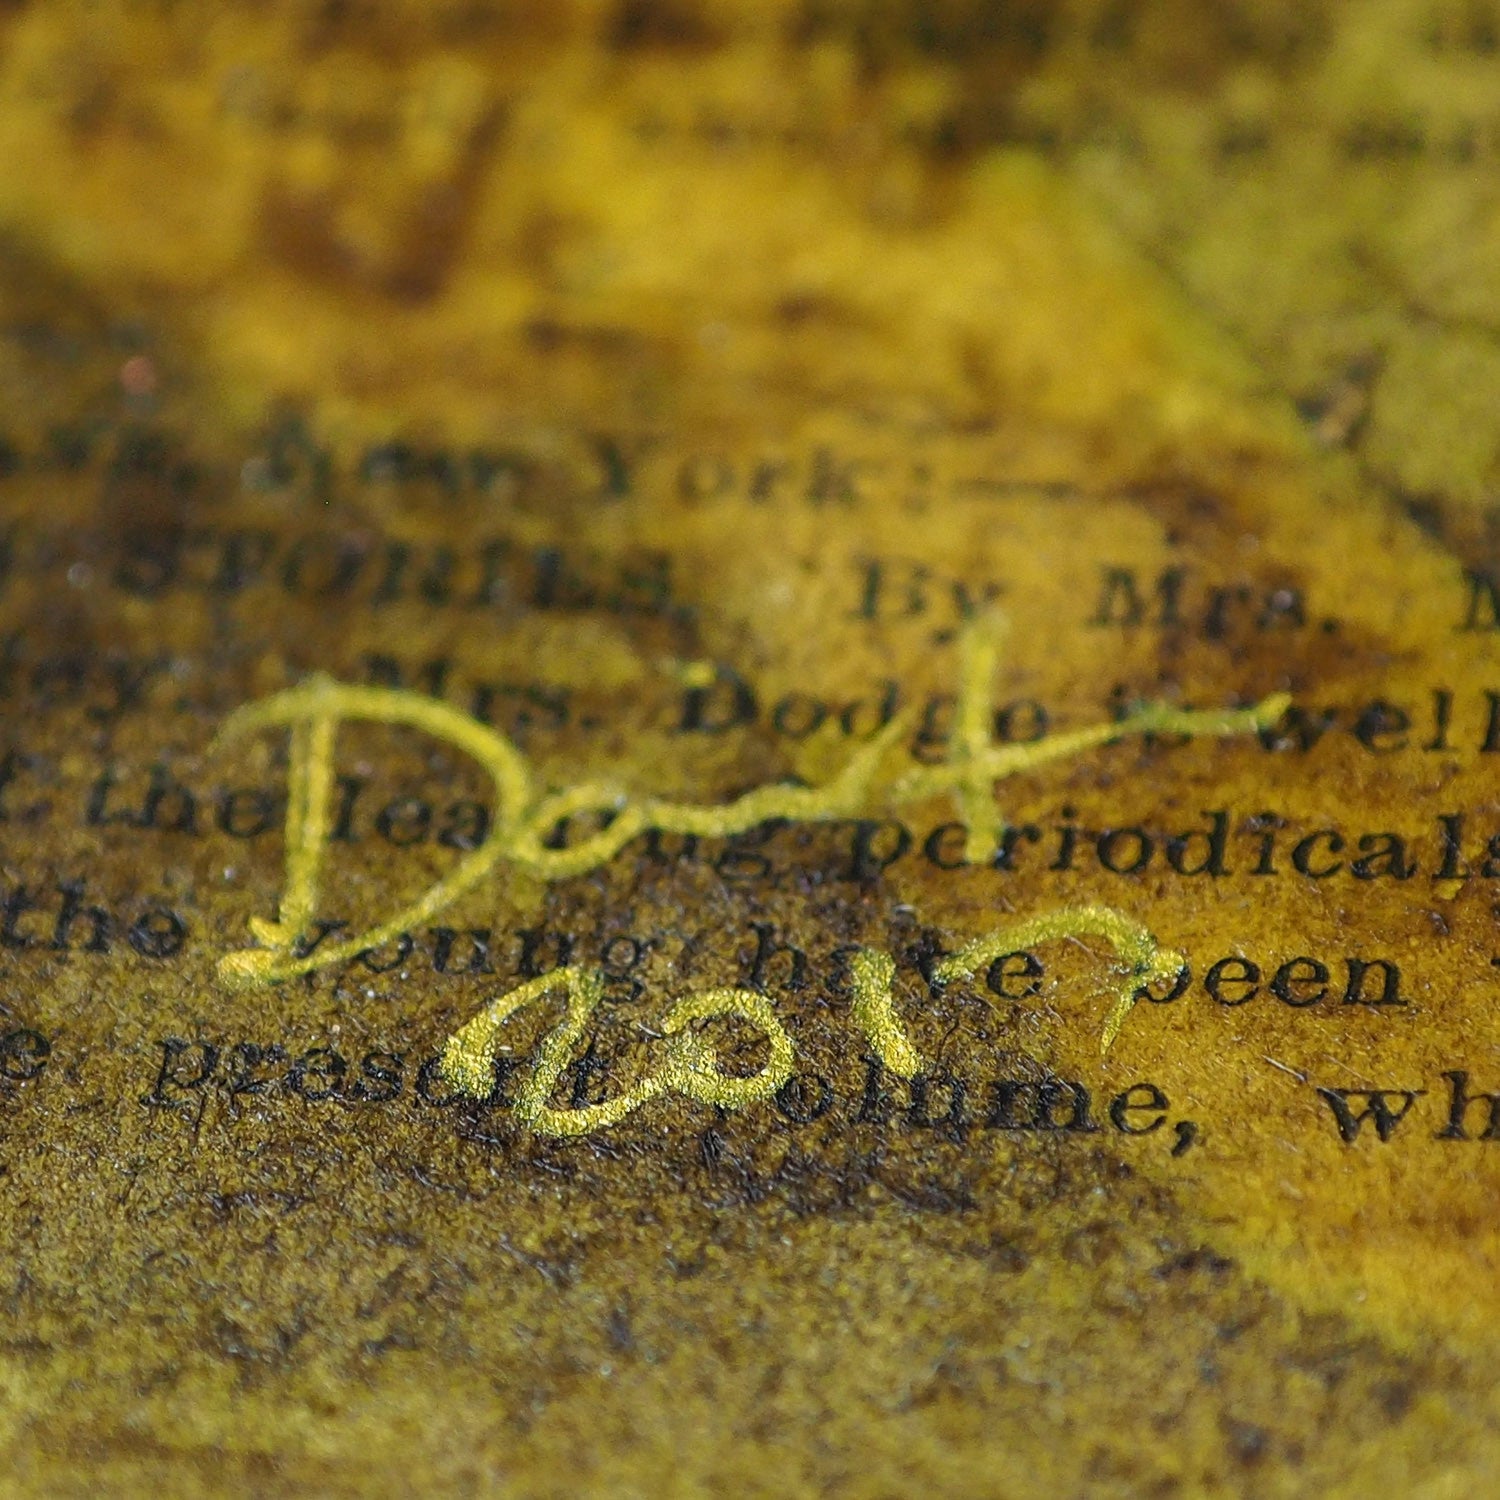 New York:—
STORIES. By Mrs.
Mrs. Dodge is well
the leading periodicals
the young have been
present volume, wh
2017